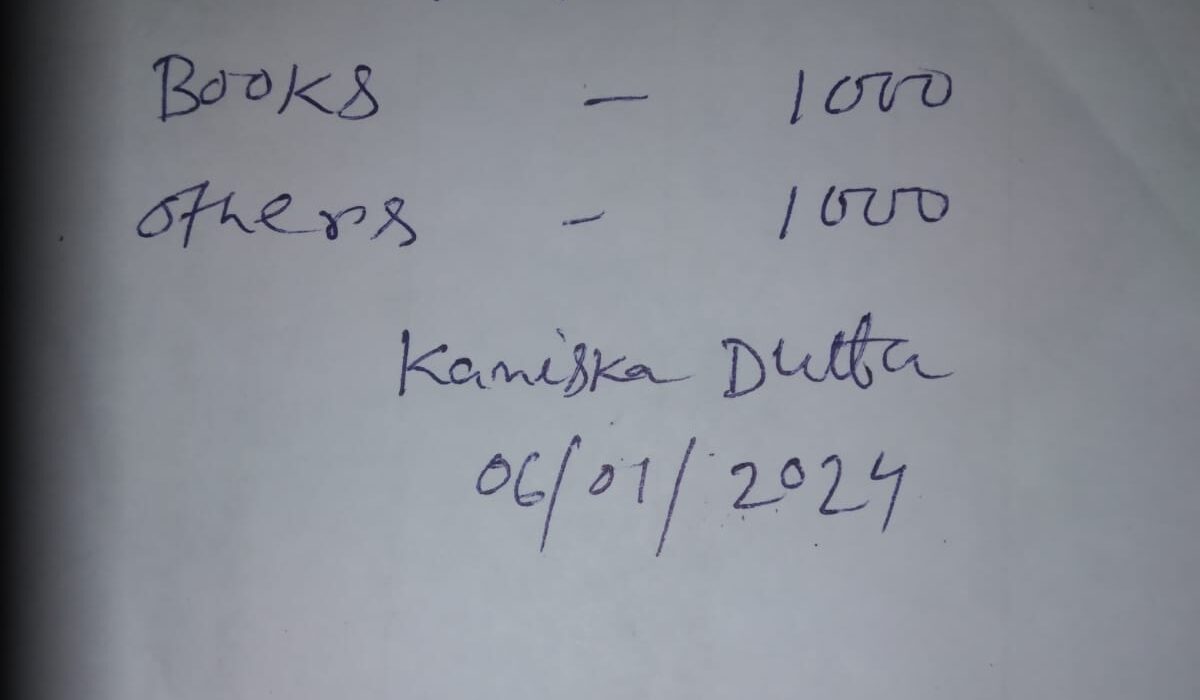 Books - 1000
others - 1000
Kaniska Dutta
06/01/2024